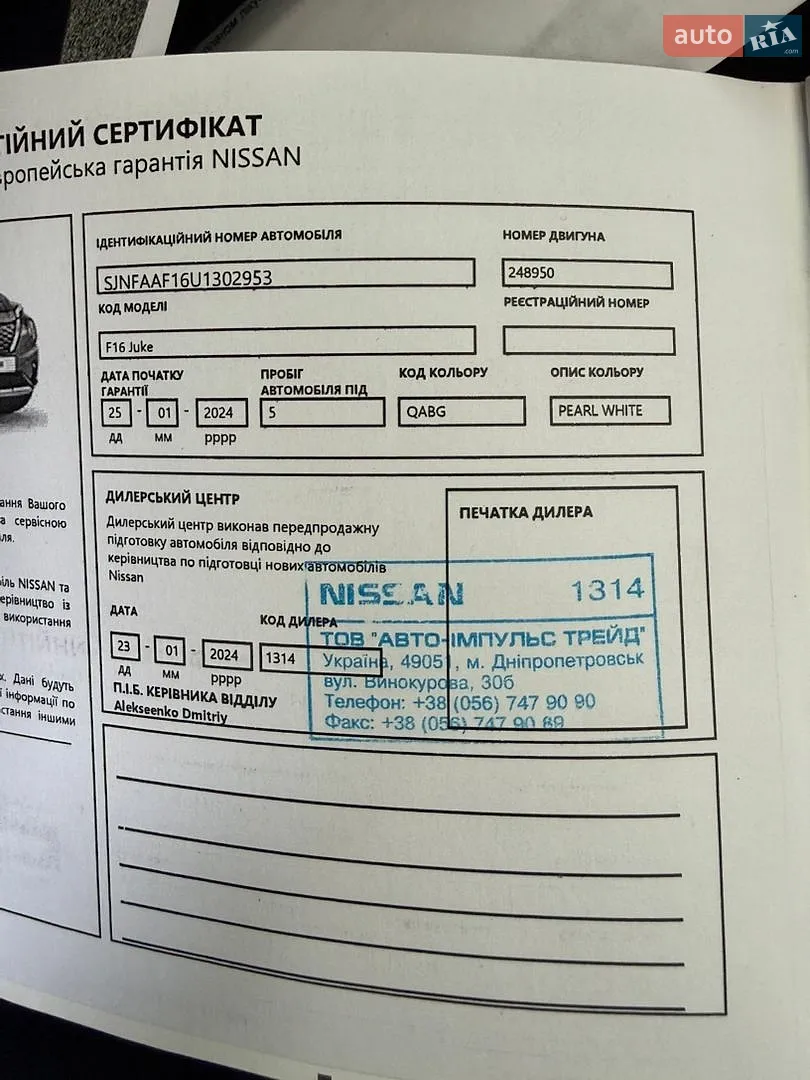 auto RIA .com
ІЙНИЙ СЕРТИФІКАТ
вропейська гарантія NISSAN
ІДЕНТИФІКАЦІЙНИЙ НОМЕР АВТОМОБІЛЯ
НОМЕР ДВИГУНА
SJNFAAF16U1302953
248950
КОД МОДЕЛІ
РЕЄСТРАЦІЙНИЙ НОМЕР
F16 Juke
ДАТА ПОЧАТКУ
ГАРАНТІЇ
ПРОБІГ
АВТОМОБІЛЯ ПІД
КОД КОЛЬОРУ
ОПИС КОЛЬОРУ
25 - 01 - 2024
5
QABG
PEARL WHITE
ДД ММ РРРР
ання Вашого
а сервісною
ля.
іль NISSAN та
ерівництво із
використання
х. Дані будуть
ї інформації по
стання іншими
ДИЛЕРСЬКИЙ ЦЕНТР
Дилерський центр виконав передпродажну
підготовку автомобіля відповідно до
керівництва по підготовці нових автомобілів
Nissan
ДАТА
КОД ДИЛЕРА
23 - 01 - 2024
1314
ДД ММ РРРР
П.І.Б. КЕРІВНИКА ВІДДІЛУ
Alekseenko Dmitriy
ПЕЧАТКА ДИЛЕРА
NISSAN 1314
ТОВ "АВТО-ІМПУЛЬС ТРЕЙД"
Україна, 4905, м. Дніпропетровськ
вул. Винокурова, 30б
Телефон: +38 (056) 747 90 90
Факс: +38 (056) 747 90 69